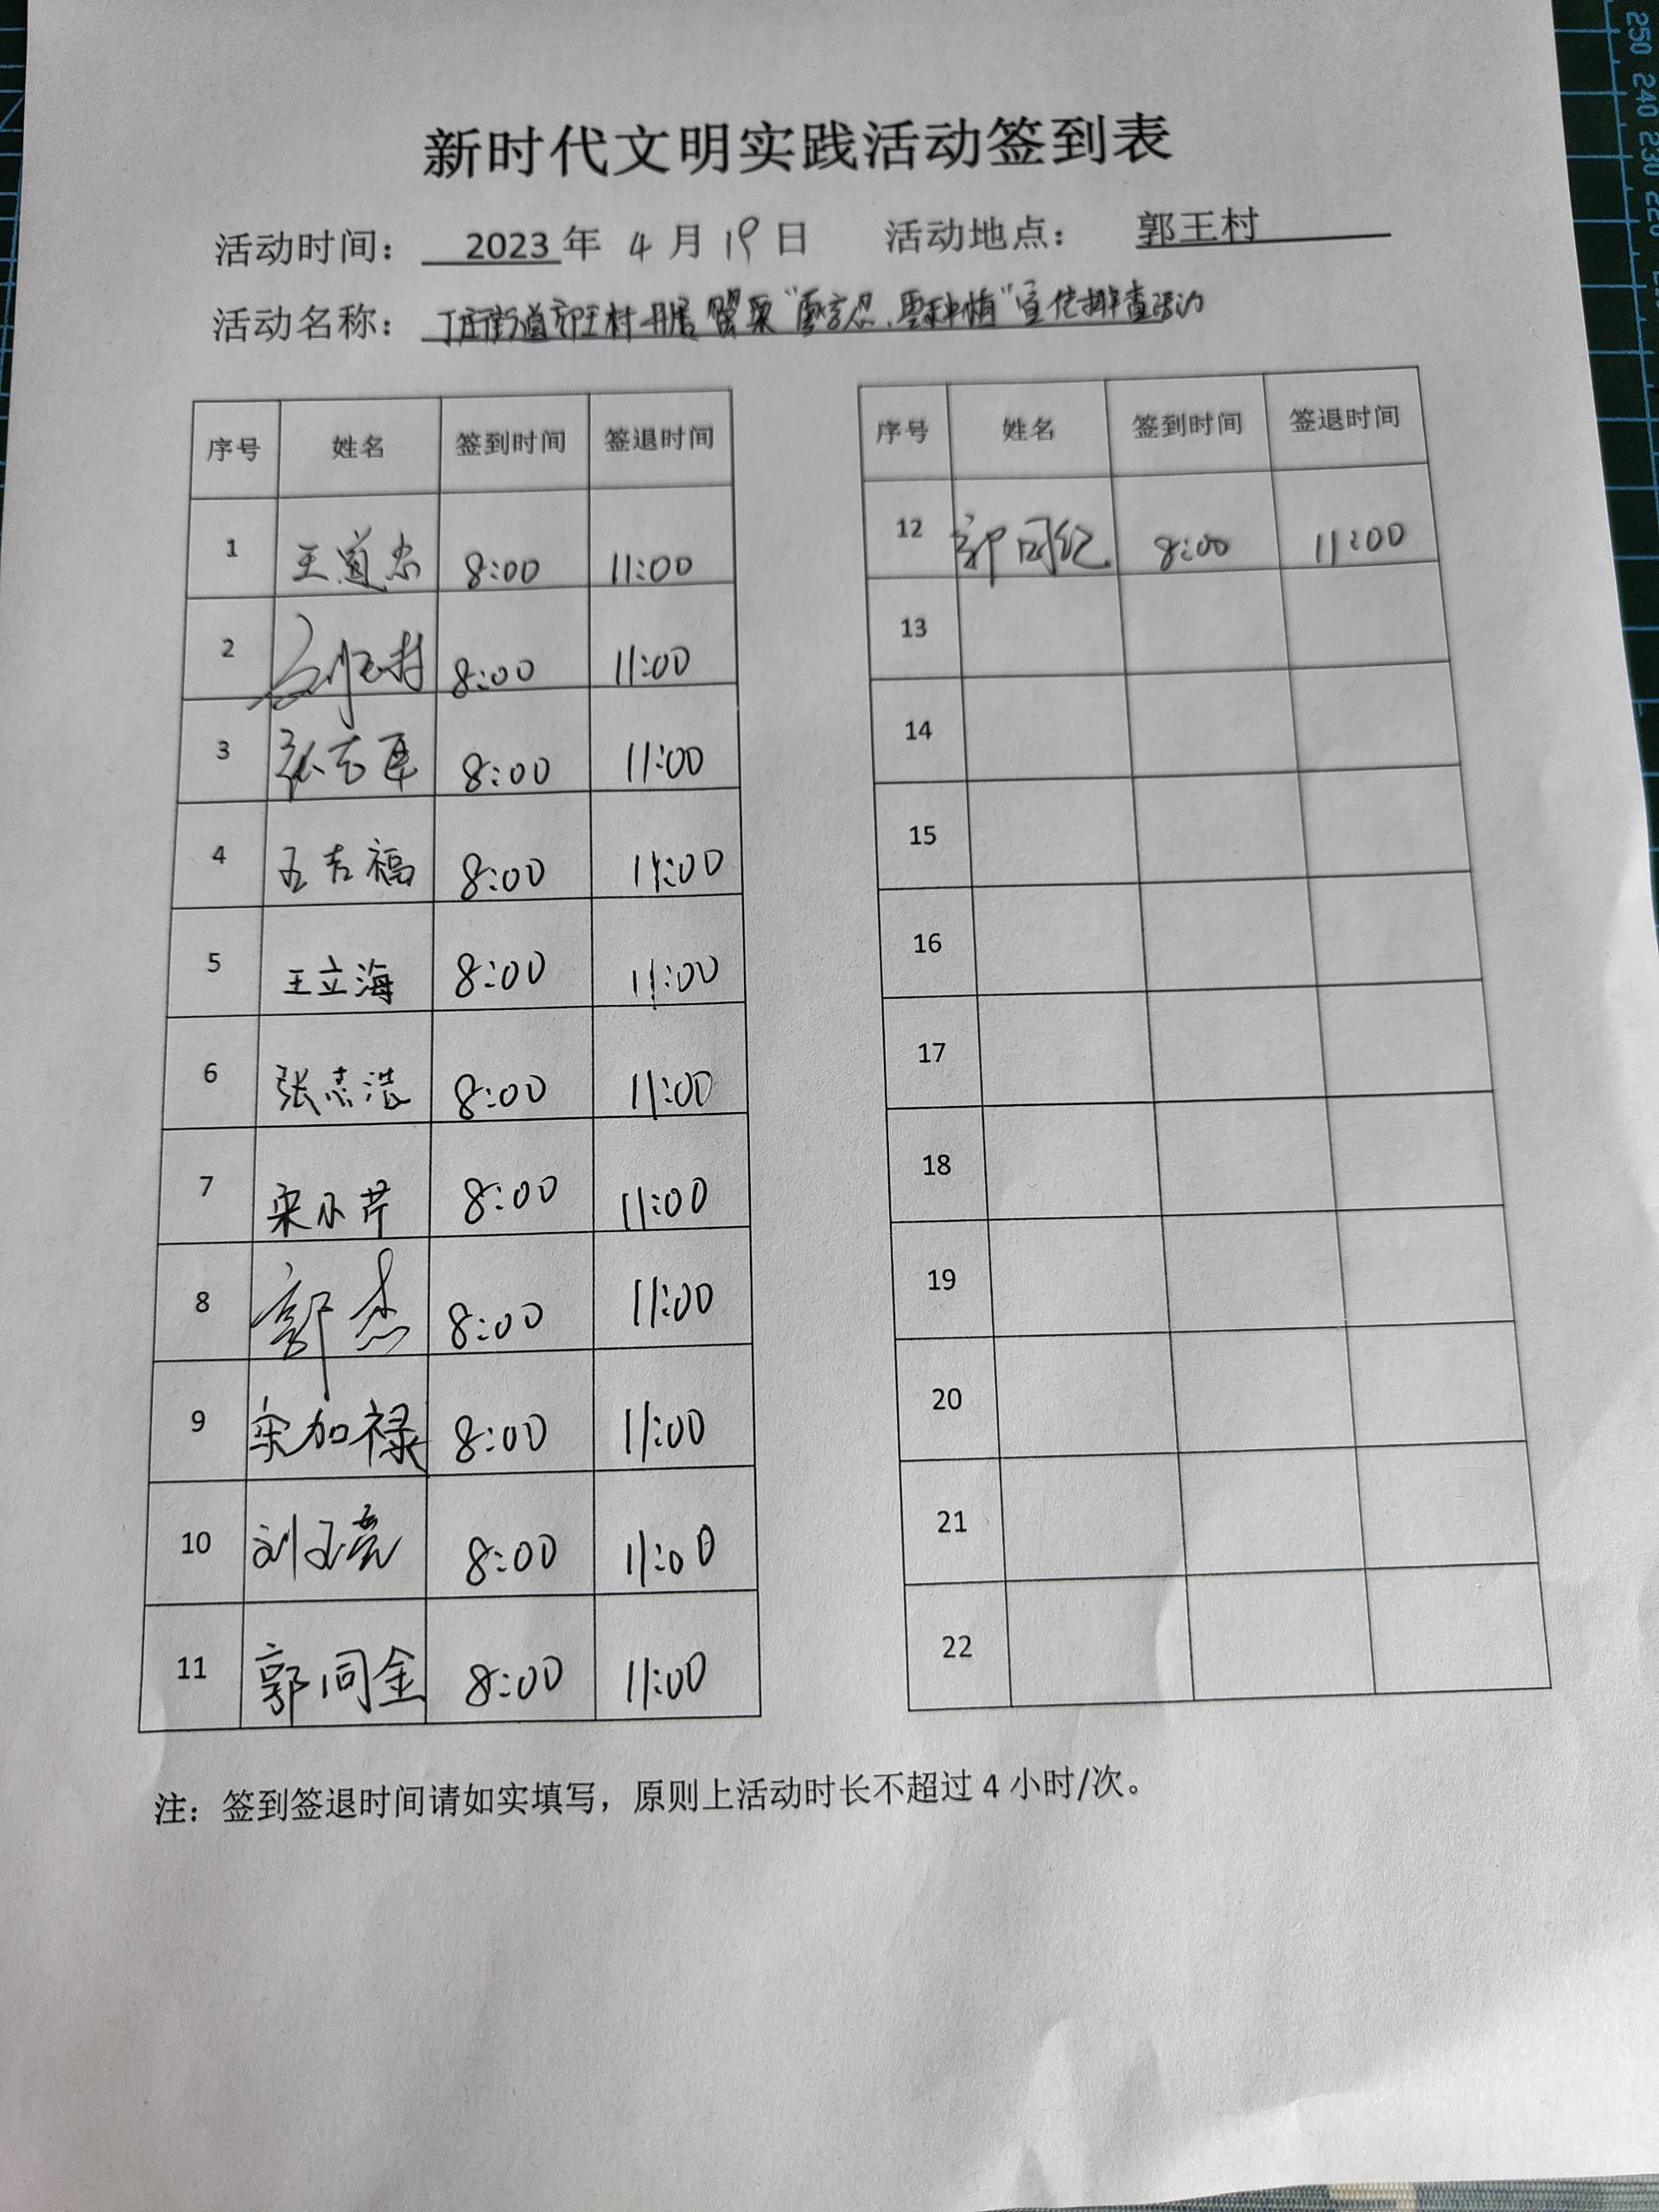 新时代文明实践活动签到表
活动时间： 2023 年 4 月 19 日 活动地点： 郭王村
活动名称： 丁庄街道郭王村开展罂粟“零容忍、零种植”宣传排查活动
序号 姓名 签到时间 签退时间
1 王道忠 8:00 11:00
2 8:00 11:00
3 8:00 11:00
4 王吉福 8:00 11:00
5 王立海 8:00 11:00
6 张志浩 8:00 11:00
7 宋小芹 8:00 11:00
8 郭杰 8:00 11:00
9 宋加禄 8:00 11:00
10 刘玉亮 8:00 11:00
11 郭同金 8:00 11:00
序号 姓名 签到时间 签退时间
12 郭同纪 8:00 11:00
13
14
15
16
17
18
19
20
21
22
注：签到签退时间请如实填写，原则上活动时长不超过 4 小时/次。
250 240 230 220